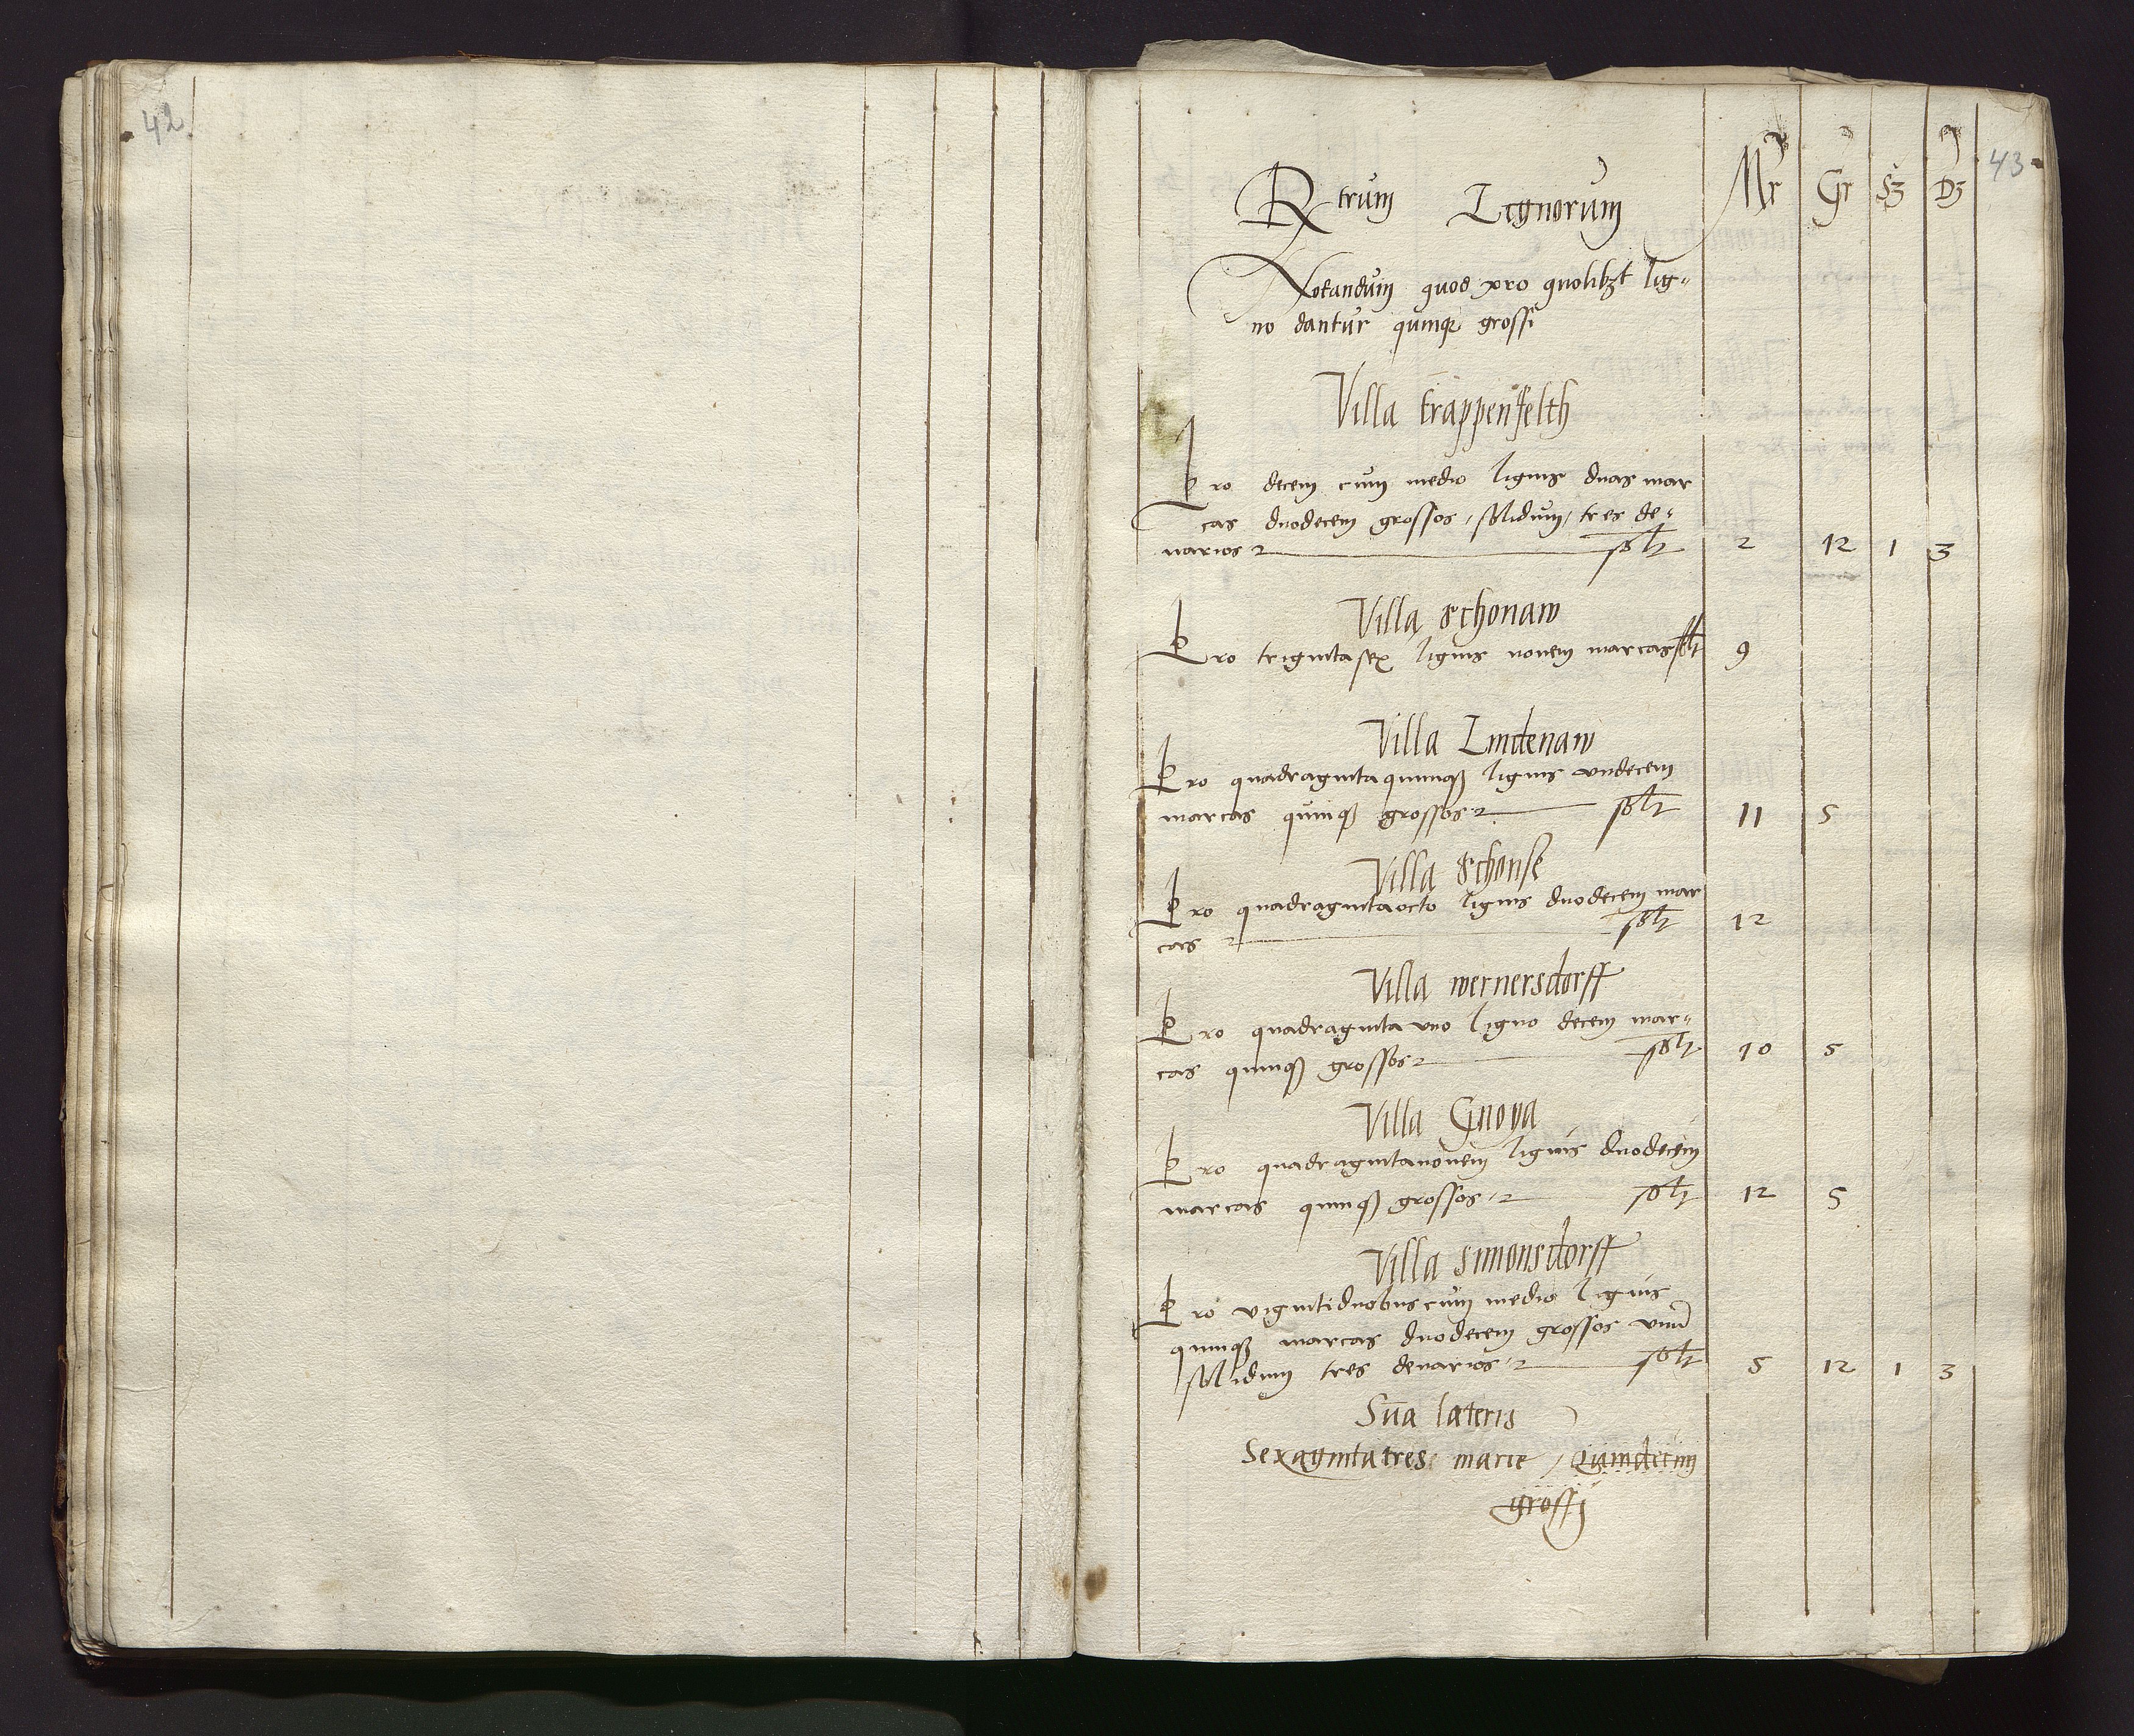 42
43
Rxtrum Lignorum
Mr Gr Sz Dz
Notandum quod pro quolibzt lig„
no dantur quinqz grossi
Villa trappenfelth
Pro decem cum medio lignis duas mar
cas duodecem grossos / solidum / tres de„
narios solt 2 12 1 3
Villa Schonaw
Pro trigintasex lignis novem marcas solt 9
Villa Lindenaw
Pro quadragintaquinqz lignis undecem
marcas quinqz grossos solt 11 5
Villa Schonse
Pro quadragintaocto lignis duodecem mar
cas solt 12
Villa wernersdorff
Pro quadraginta uno ligno decem mar„
cas quinqz grossos solt 10 5
Villa Gnoya
Pro quadragintanovem lignis duodecem
marcas quinqz grossos solt 12 5
Villa simonsdorff
Pro vigintiduobus cum medio lignis
quinqz marcas duodecem grossos unū
solidum tres denarios solt 5 12 1 3
Sūa lateris
Sexagintatres marce / Quindecim
grossj